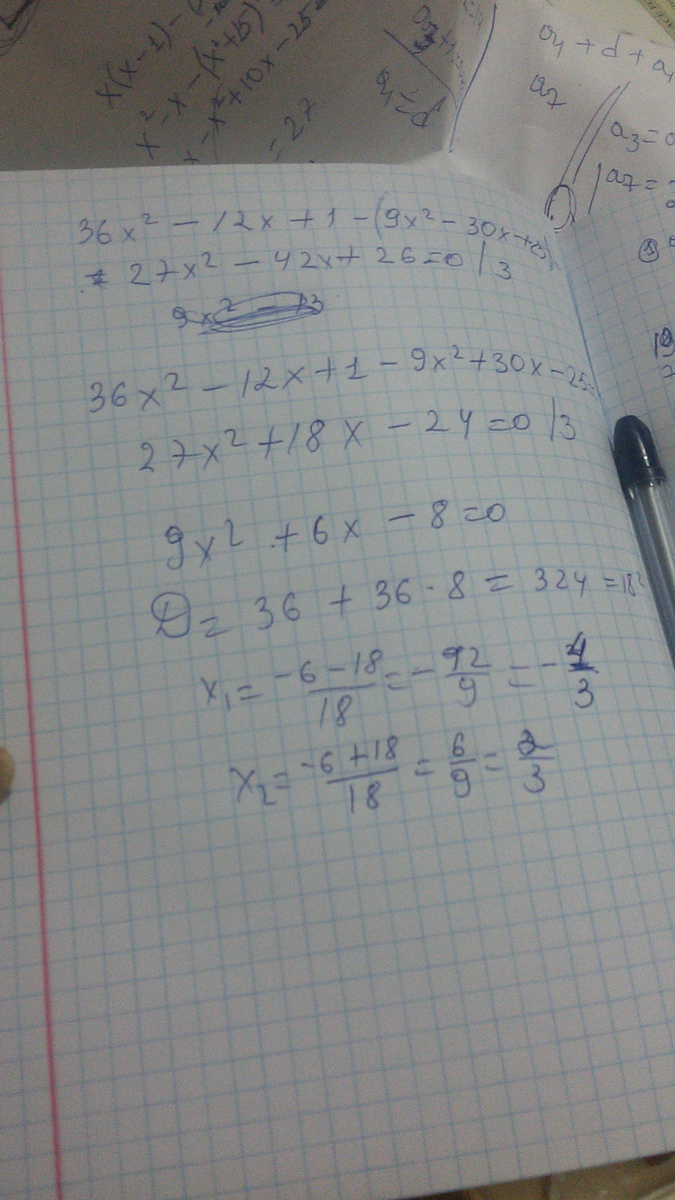 x(x-1)-(
x²-x-(x²+5)
-x²+10x-25
=27
a₁=d
a₁+d+a₁
a₇
a₃=
a₇=
36x²-12x+1-(9x²-30x+25)
27x²-42x+26=0 |3
36x²-12x+1-9x²+30x-25=
27x²+18x-24=0 |3
9x²+6x-8=0
D= 36+36·8=324=18²
x₁= (-6-18)/18 = -12/9 = -4/3
x₂= (-6+18)/18 = 6/9 = 2/3